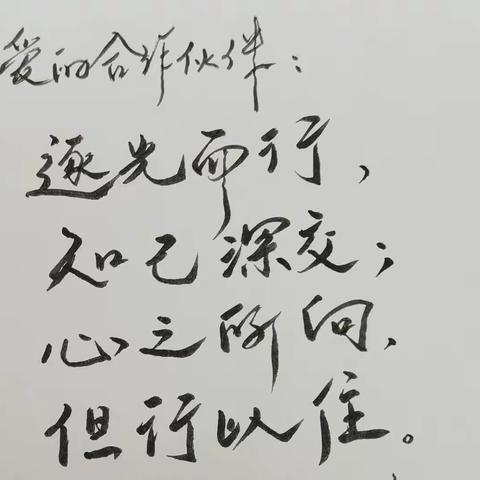 爱的合作伙伴：
逐光而行，
知己深交；
心之所向，
但行以往。